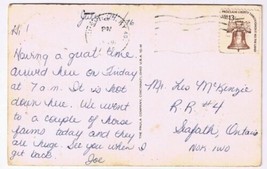 Hi!
Having a "great" time.
arrived here on Friday
at 7 a.m. It is hot
down here. We went
to a couple of horse
farms today and they
are huge. See you when I
get back.
Joe
PM
13
Mr. Les McKenzie
R.R. #4
Seaforth, Ontario
N0K 1W0